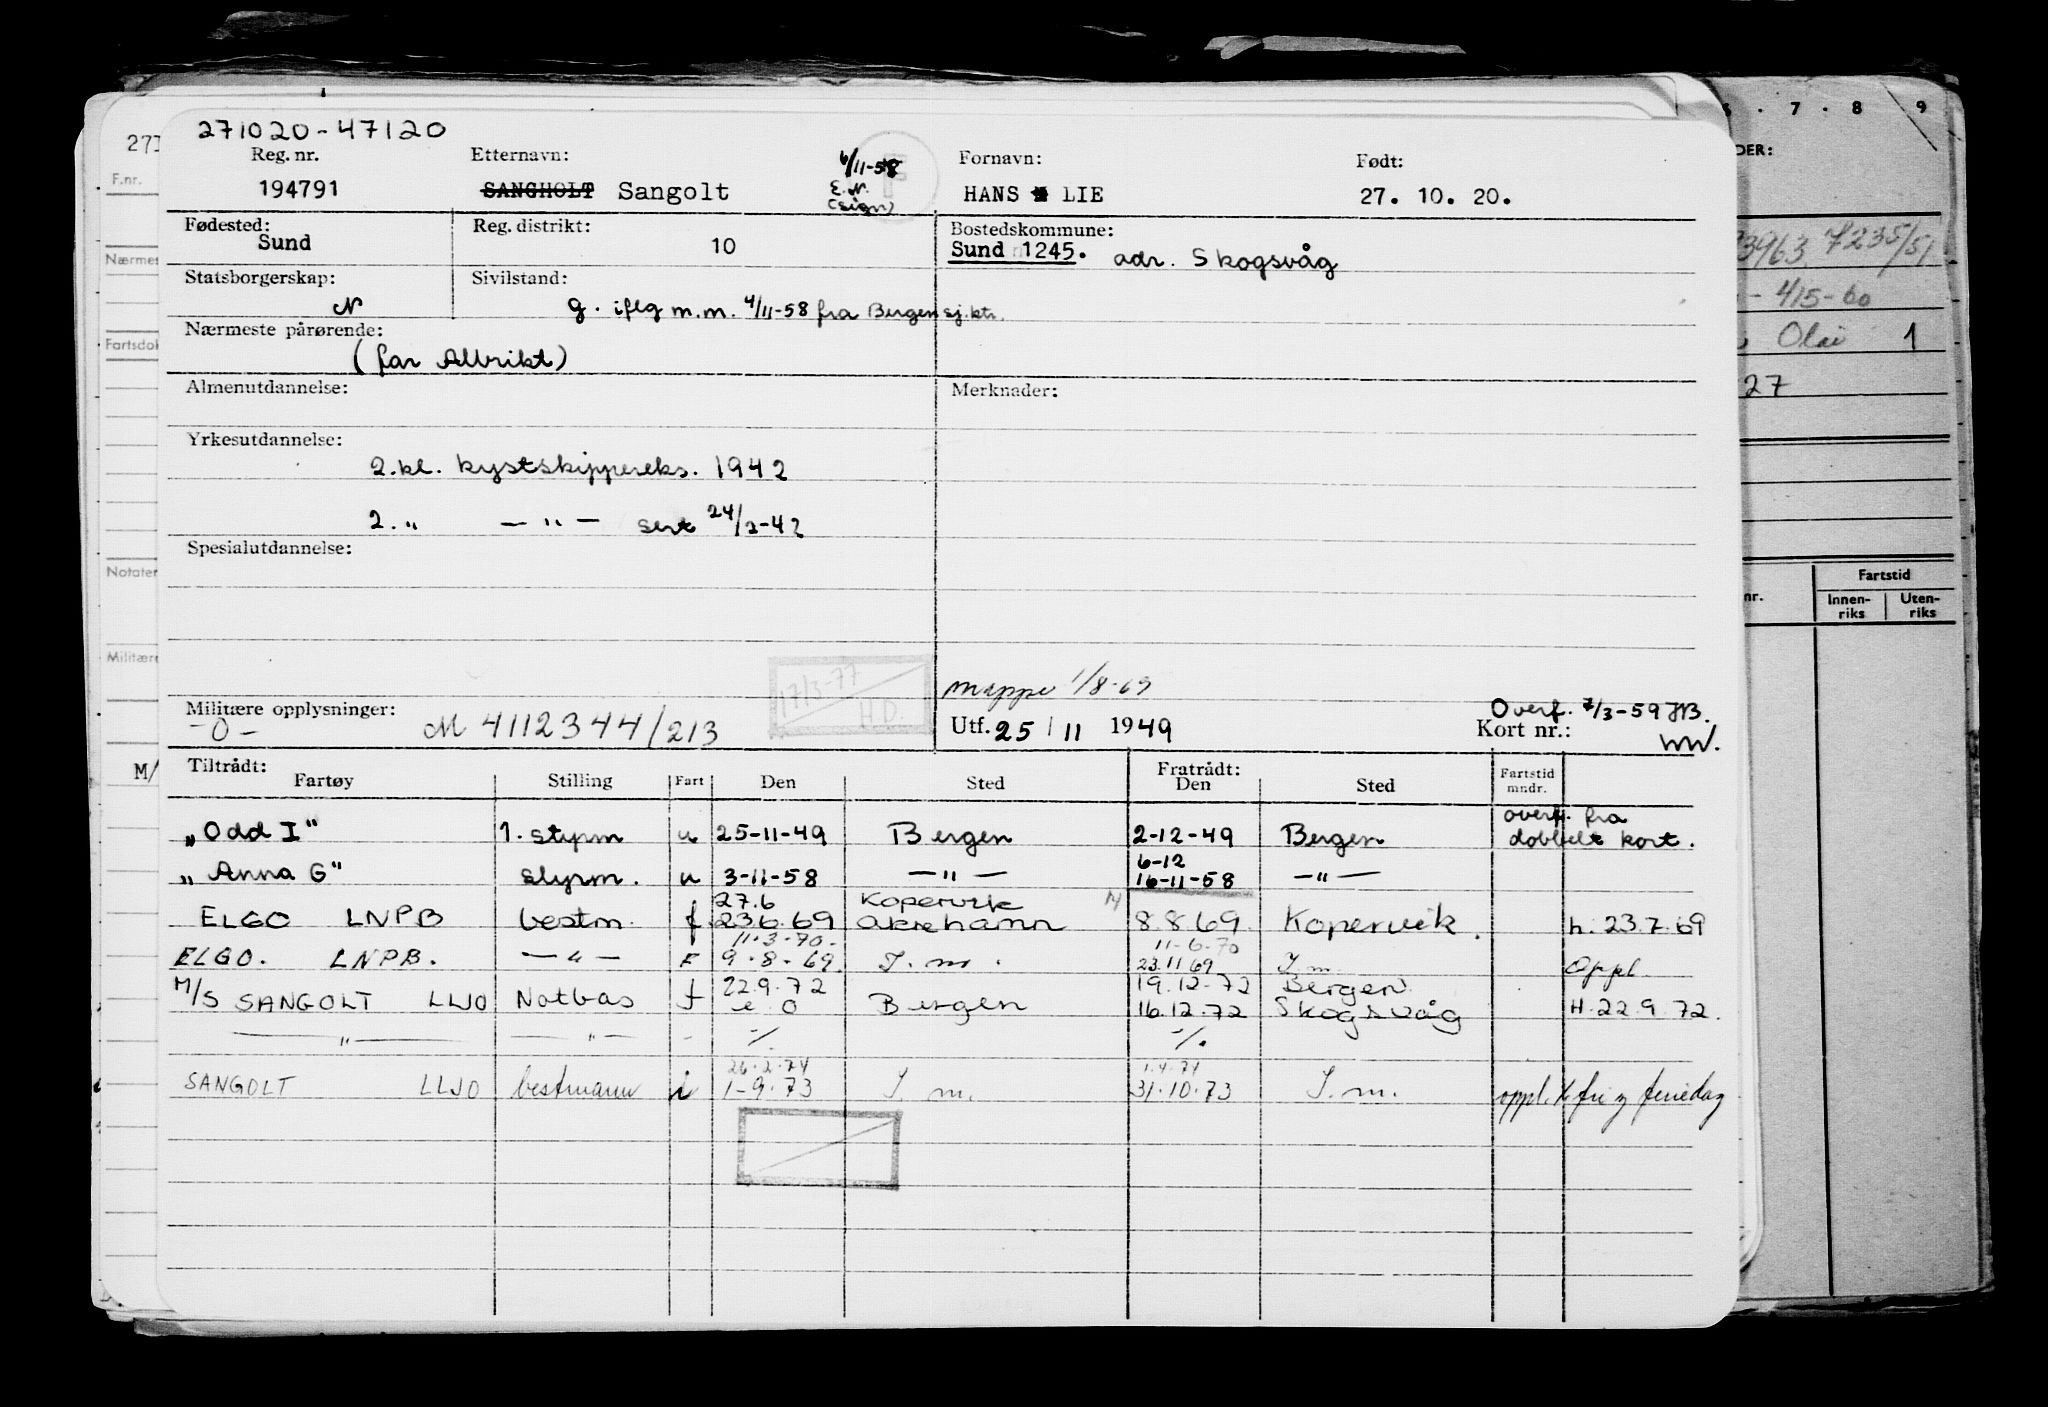 271020-47120
Reg. nr. Etternavn: 6/11-58 Fornavn: Født:
194791 SANGHOLT Sangolt E.N. (sign) HANS LIE 27. 10. 20.
Fødested: Reg. distrikt: Bostedskommune:
Sund 10 Sund 1245. adr. Skogsvåg
Statsborgerskap: Sivilstand:
N g. iflg m.m. 4/11-58 fra Bergen sj.ktr.
Nærmeste pårørende:
(far Albrikt)
Almenutdannelse: Merknader:
Yrkesutdannelse:
2.kl. kystskippereks. 1942
2. „ — „ — sert 24/3-42
Spesialutdannelse:
17/3-77 H.D.
mappe 1/8-69
Militære opplysninger: Overf. 7/3-59 JB.
-0- M 4112344/213 Utf. 25/11 1949 Kort nr.: WW.
Tiltrådt: Fratrådt: Fartstid
Fartøy Stilling Fart Den Sted Den Sted mndr.
„Odd I" 1. styrm u 25-11-49 Bergen 2-12-49 Bergen overf. fra dobbelt kort.
6-12
„Anna G" styrm. u 3-11-58 — „ — 16-11-58 — „ —
27.6 Kopervik
ELGO LNPB bestm. f 23.6.69 Åkrehamn 8.8.69 Kopervik. h. 23.7.69
11.3.70- 11-6-70
ELGO. LNPB. — „ — F 9.8.69. I.m. 23.11 69 I m Oppl.
22.9.72 19.12-72 Bergen.
M/S SANGOLT LLJO Notbas f e. O Bergen 16.12.72 Skogsvåg H. 22.9.72.
— „ — — „ — - -/- -/.
26.2.74 1.4.74
SANGOLT LLJO bestmann i 1-9.73 I.m. 31.10.73 I.m. oppl. fri og feriedag
277
F.nr.
Nærmes
Fartsdok
Notater
Militære
M/
7 . 8 9
DER:
3963 7235/51
- 415-60
Olai 1
27
nr. Fartstid
Innen-riks Uten-riks